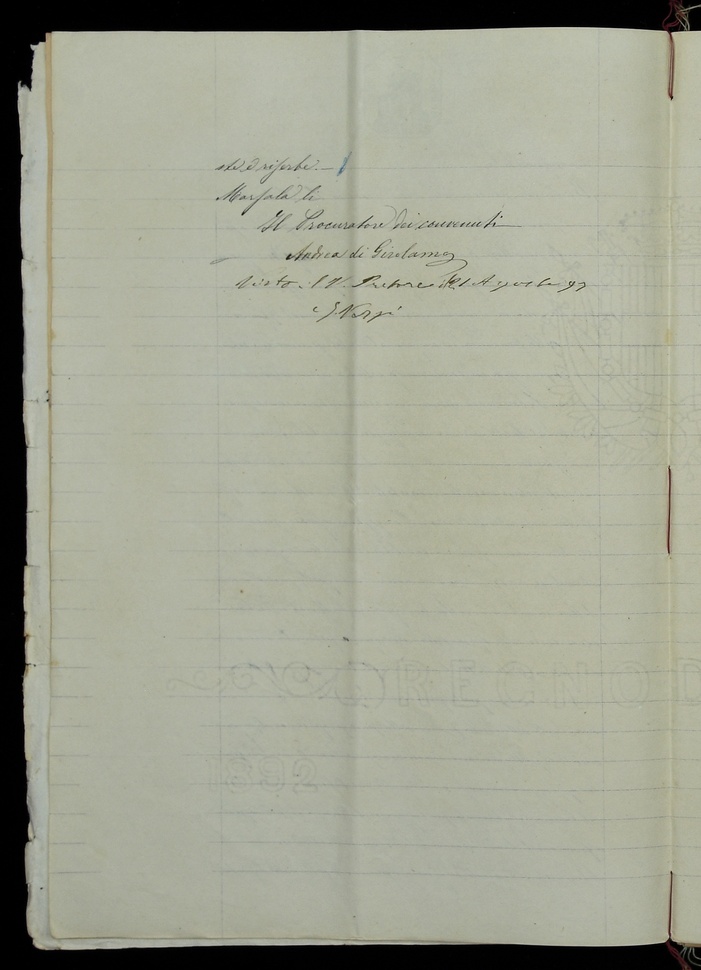 ste e riserbe. —
Marsala li
Il Procuratore dei convenuti
Andrea di Girolamo
Visto. Il V. Pretore 21 Agosto 97
REGNO D
1892